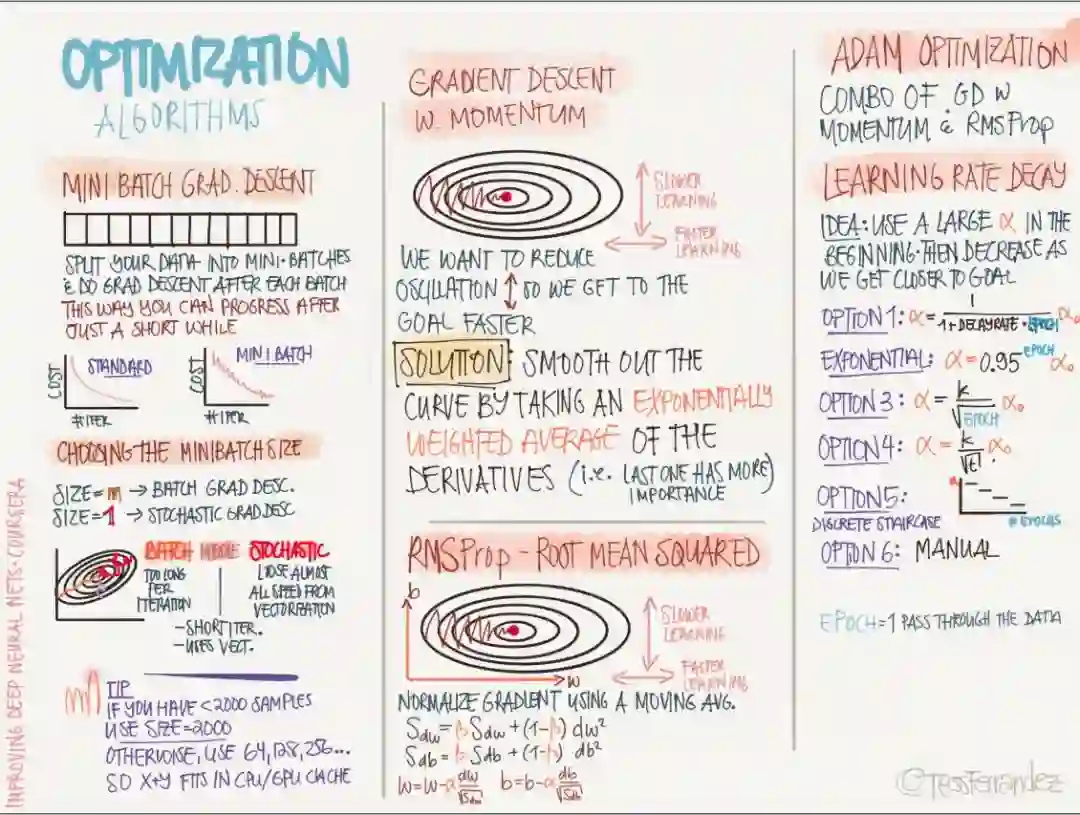 OPTIMIZATION
ALGORITHMS
MINI BATCH GRAD. DESCENT
SPLIT YOUR DATA INTO MINI-BATCHES
& DO GRAD DESCENT AFTER EACH BATCH
THIS WAY YOU CAN PROGRESS AFTER
JUST A SHORT WHILE
COST
STANDARD
# ITER
COST
MINI BATCH
# ITER
CHOOSING THE MINIBATCH SIZE
SIZE=m → BATCH GRAD DESC.
SIZE=1 → STOCHASTIC GRAD DESC
BATCH MIDDLE STOCHASTIC
TOO LONG
PER
ITERATION
LOSE ALMOST
ALL SPEED FROM
VECTORIZATION
-SHORT ITER.
-USES VECT.
TIP
IF YOU HAVE <2000 SAMPLES
USE SIZE=2000
OTHERWISE, USE 64, 128, 256...
SO X+Y FITS IN CPU/GPU CACHE
IMPROVING DEEP NEURAL NETS · COURSERA
GRADIENT DESCENT
W. MOMENTUM
SLOWER
LEARNING
FASTER
LEARNING
WE WANT TO REDUCE
OSCILLATION ↕ SO WE GET TO THE
GOAL FASTER
SOLUTION: SMOOTH OUT THE
CURVE BY TAKING AN EXPONENTIALLY
WEIGHTED AVERAGE OF THE
DERIVATIVES (i.e. LAST ONE HAS MORE)
IMPORTANCE
RMSProp - ROOT MEAN SQUARED
b
W
SLOWER
LEARNING
FASTER
LEARNING
NORMALIZE GRADIENT USING A MOVING AVG.
Sdw = β Sdw + (1-β) dw²
Sdb = β Sdb + (1-β) db²
W=W-α dw/√Sdw b=b-α db/√Sdb
ADAM OPTIMIZATION
COMBO OF GD W
MOMENTUM & RMSProp
LEARNING RATE DECAY
IDEA: USE A LARGE α IN THE
BEGINNING. THEN DECREASE AS
WE GET CLOSER TO GOAL
OPTION 1: α = 1/(1+DECAYRATE·EPOCH) α₀
EXPONENTIAL: α=0.95^EPOCH α₀
OPTION 3: α = k/√EPOCH α₀
OPTION 4: α = k/√t α₀.
OPTION 5:
DISCRETE STAIRCASE
α
# EPOCHS
OPTION 6: MANUAL
EPOCH=1 PASS THROUGH THE DATA
©TessFerrandez